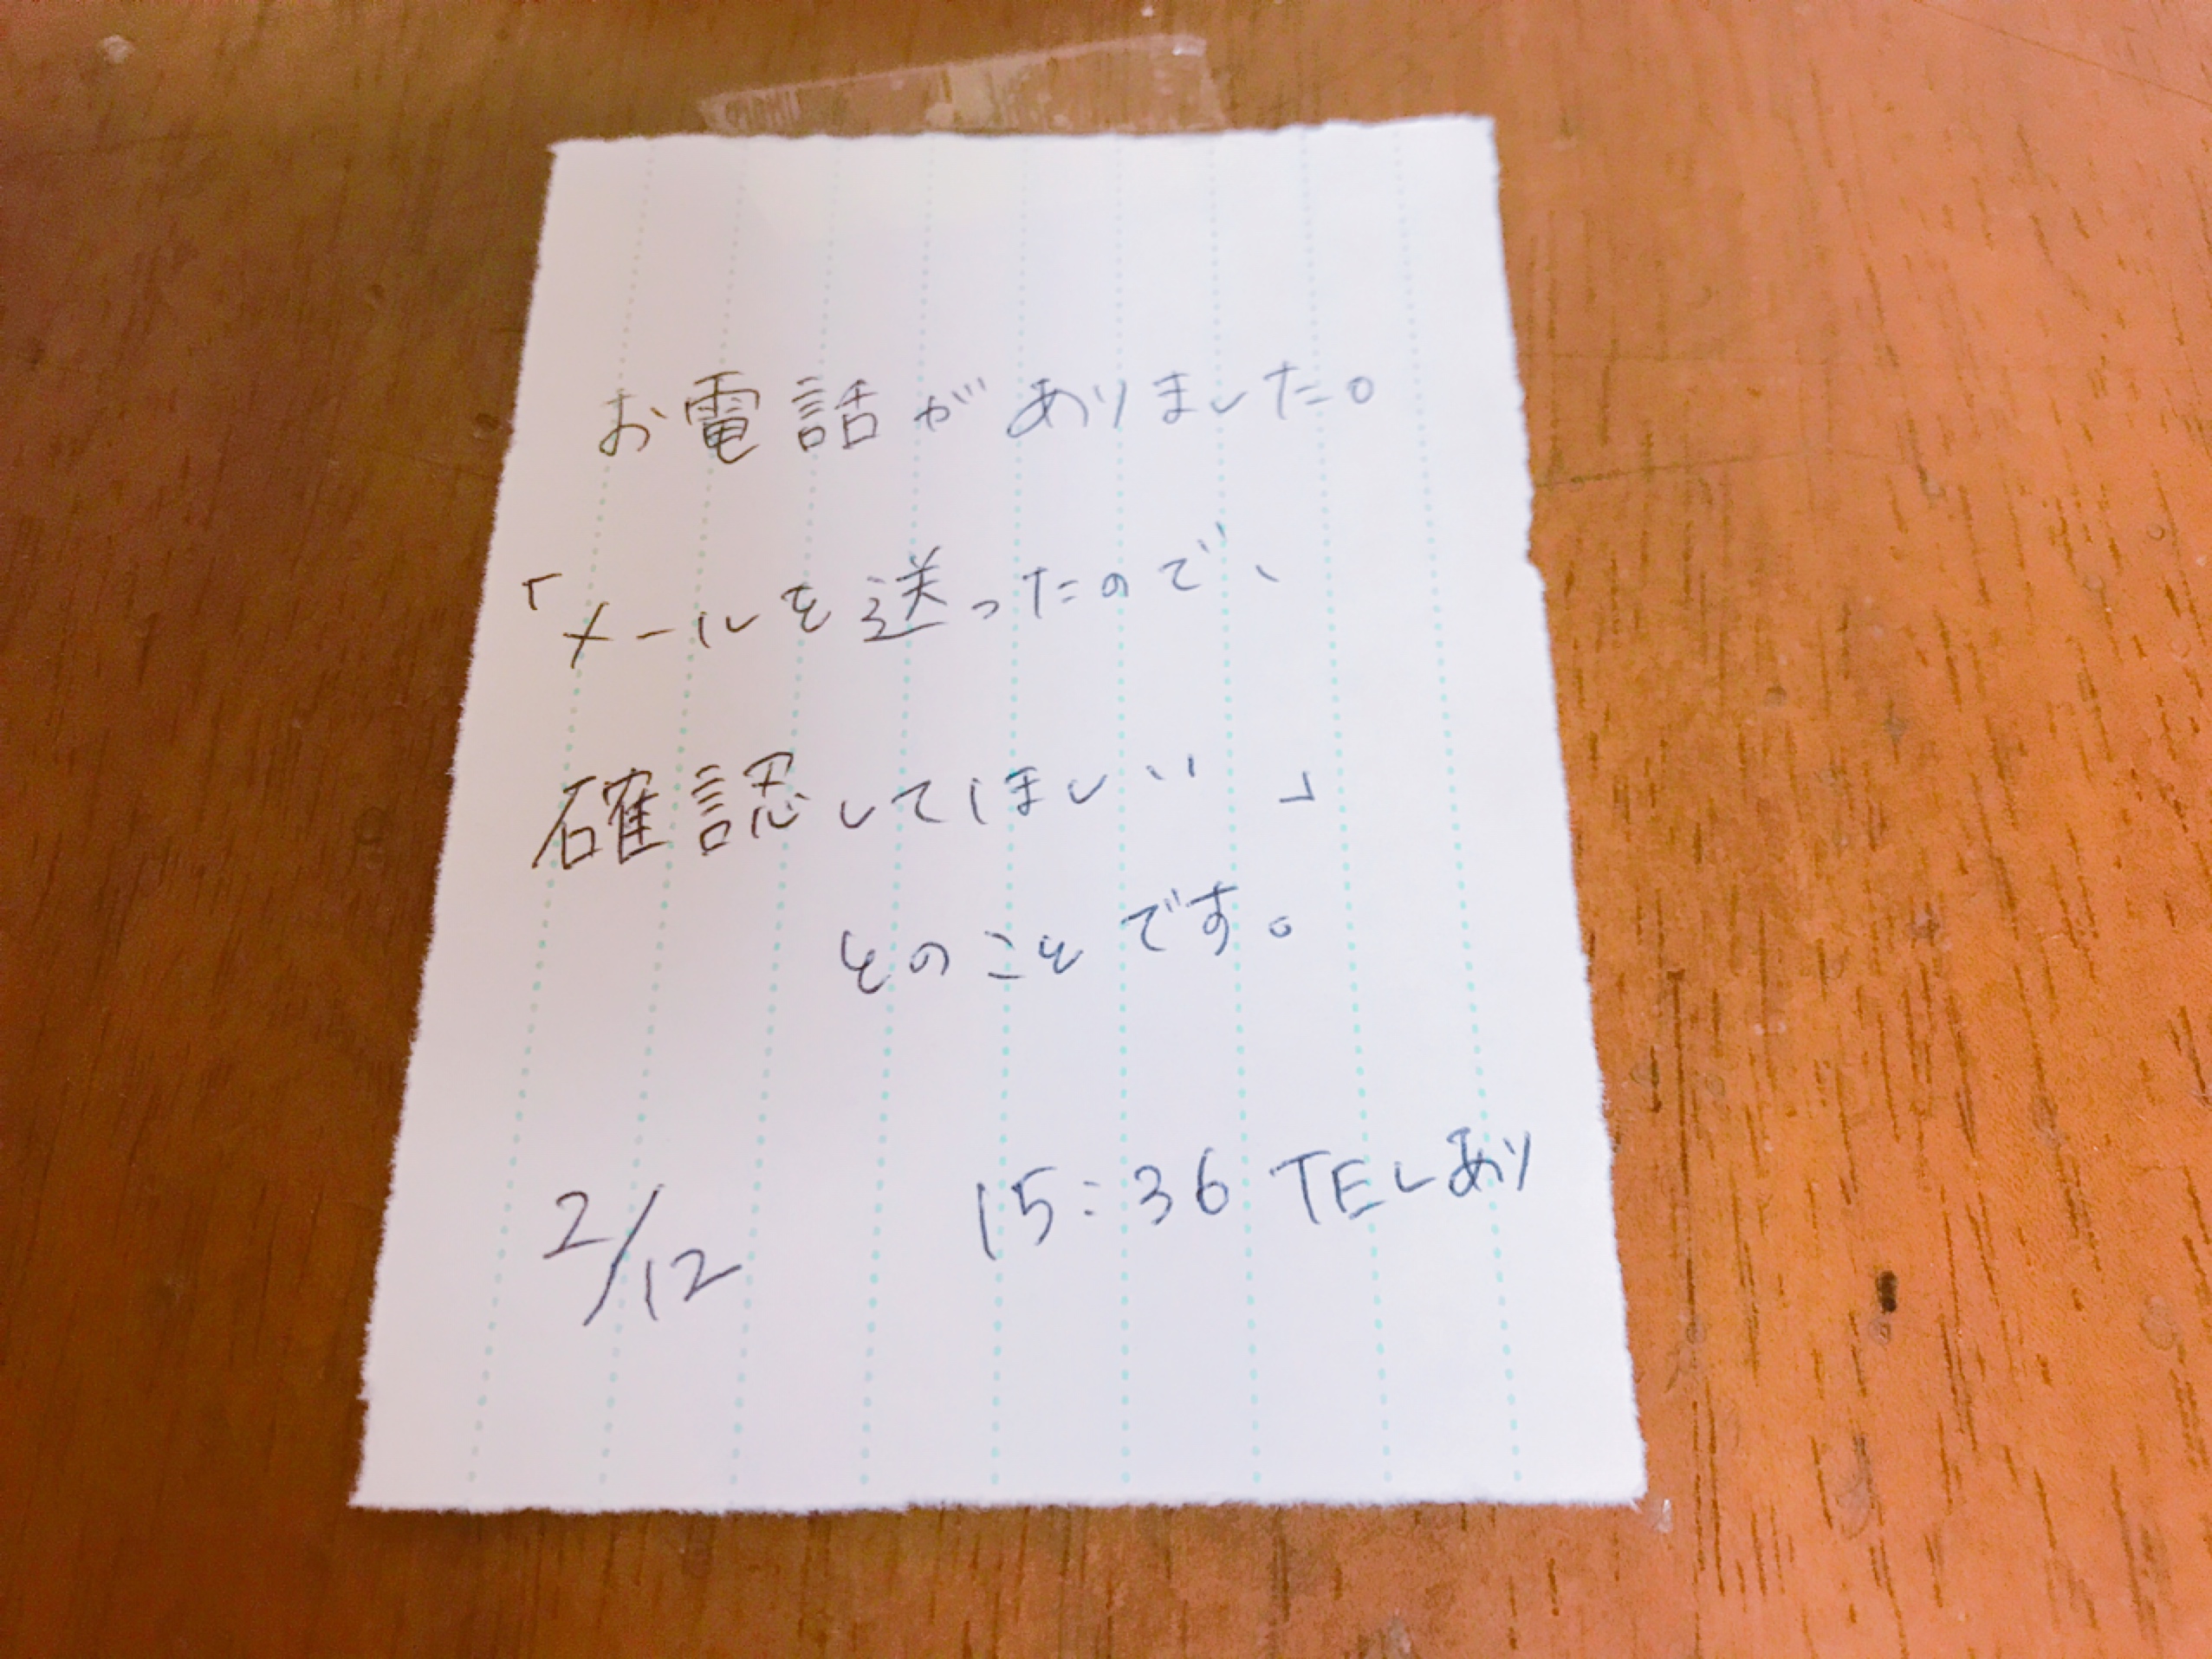 お電話がありました。
「メールを送ったので、
確認してほしい」
とのことです。
2/12 15:36 TELあり